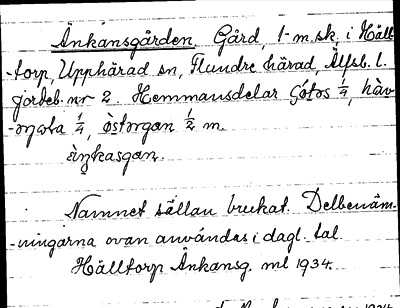 Änkånsgården. Gård, 1 m.sk. i Häll-
-torp, Upphärad sn, Flundre härad, Älfsb. l.
jordeb. nr 2. Hemmansdelar Götos 1/4, häv-
1/4, östorgan 1/2 m.
änkasgan.
Namnet sällan brukat. Delbenäm-
-ningarna ovan användas i dagl. tal.
Hälltorp Änkansg. ml 1934.